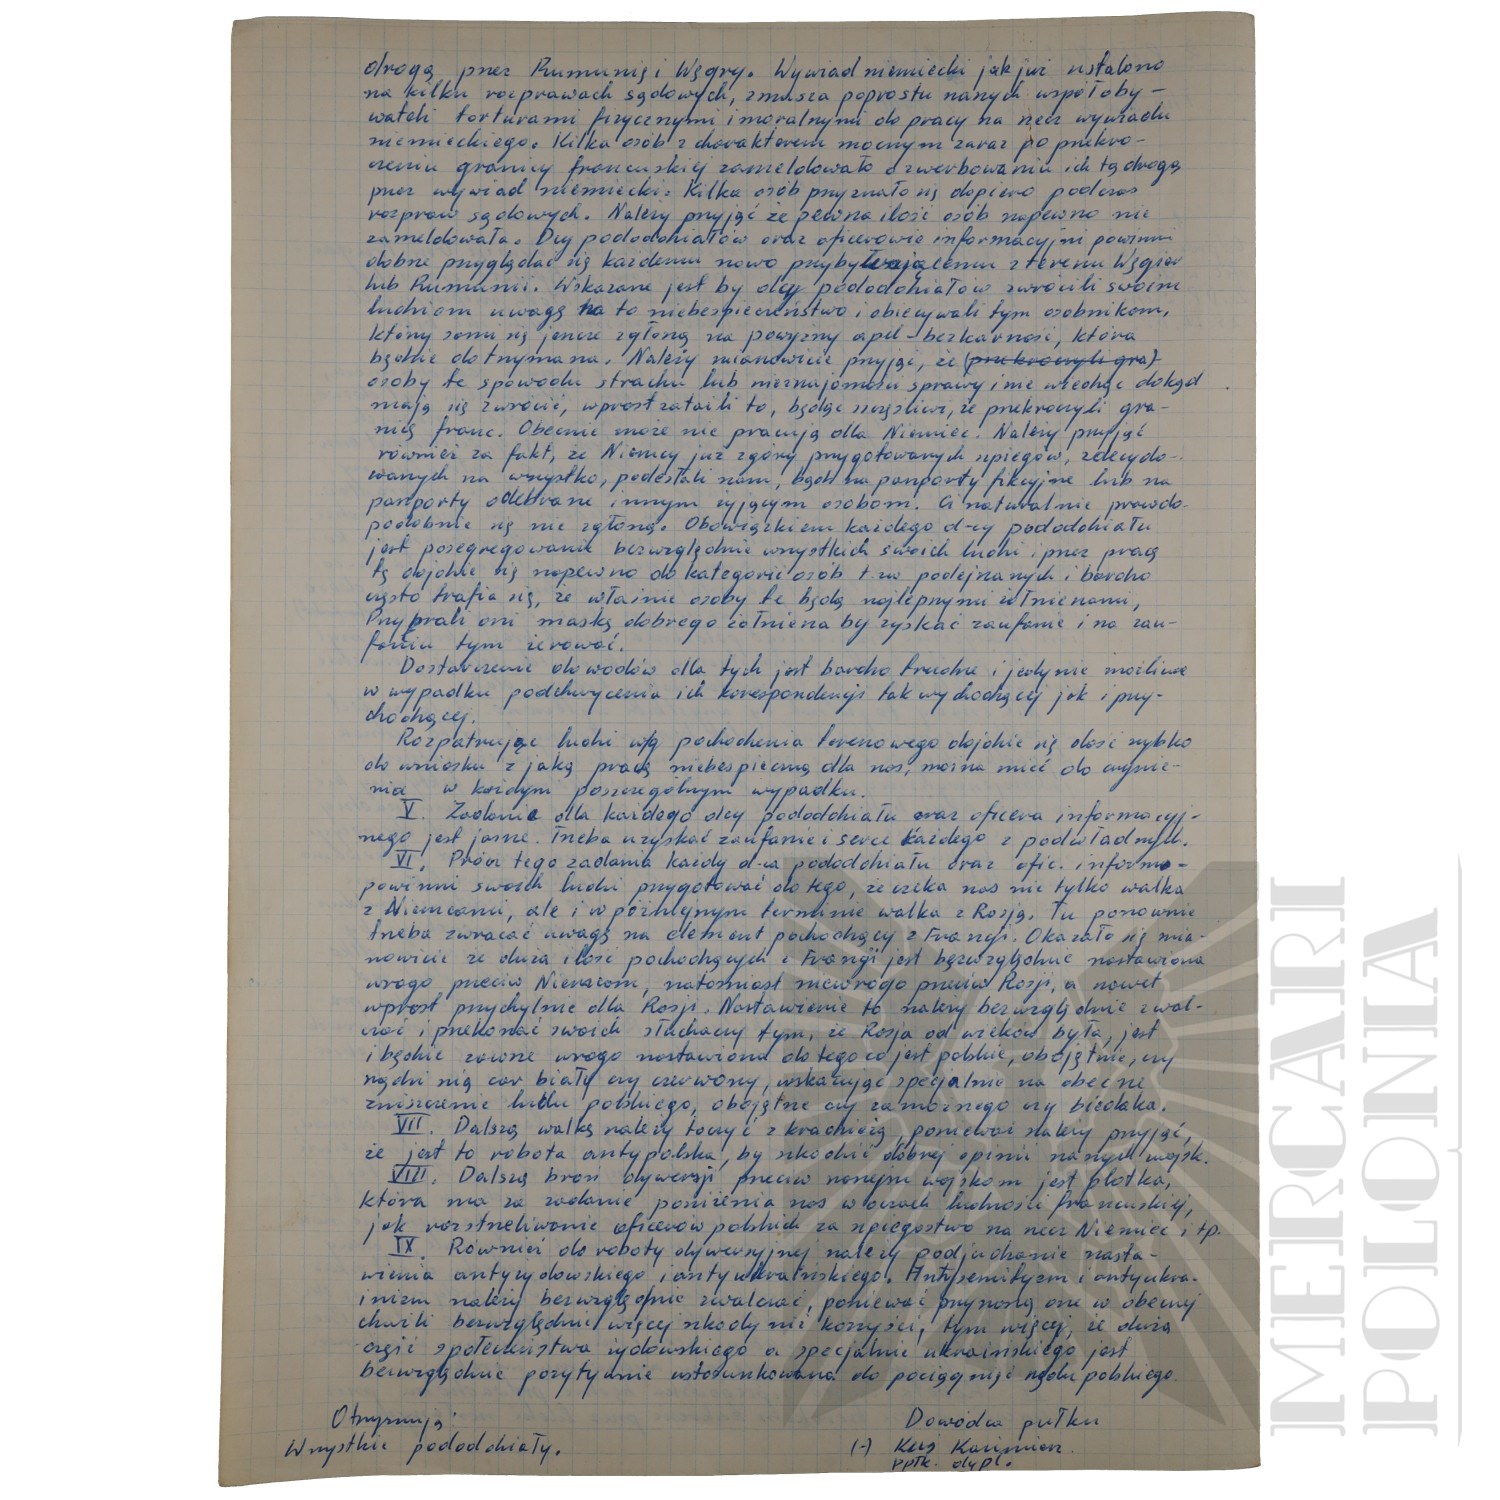 drogą przez Rumunię i Węgry. Wywiad niemiecki jak już ustalono
na kilku rozprawach sądowych, zmusza poprostu naszych współoby-
wateli torturami fizycznymi i moralnymi do pracy na rzecz wywiadu
niemieckiego. Kilka osób z charakterem mocnym zaraz po przekro-
czeniu granicy francuskiej zameldowało o zwerbowaniu ich tą drogą
przez wywiad niemiecki. Kilka osób przyznało się dopiero podczas
rozpraw sądowych. Należy przyjąć że pewna ilość osób napewno nie
zameldowała. Dcy pododdziałów oraz oficerowie informacyjni powinni
dobrze przyglądać się każdemu nowo przybywającemu z terenu Węgier
lub Rumunii. Wskazane jest by dcy pododdziałów zwrócili swoim
ludziom uwagę na to niebezpieczeństwo i obiecywali tym osobnikom,
którzy sami się jeszcze zgłoszą na powyższy apel - bezkarność, która
będzie dotrzymana. Należy mianowicie przyjąć, że (przekroczyli gra)
osoby te spowodu strachu lub nieznajomości sprawy i nie wiedząc dokąd
mają się zwrócić, wprost zataili to, będąc szczęśliwi, że przekroczyli gra-
nicę franc. Obecnie może nie pracują dla Niemiec. Należy przyjąć
również za fakt, że Niemcy już zgóry przygotowanych szpiegów, zdecydo-
wanych na wszystko, podesłali nam, bądź na paszporty fikcyjne lub na
paszporty odebrane innym żyjącym osobom. Ci naturalnie prawdo-
podobnie się nie zgłoszą. Obowiązkiem każdego d-cy pododdziału
jest posegregowanie bezwzględnie wszystkich swoich ludzi i przez pracę
tę dojdzie się napewno do kategorii osób t.zw podejrzanych i bardzo
często trafia się, że właśnie osoby te będą najlepszymi żołnierzami,
Przybrali oni maskę dobrego żołnierza by zyskać zaufanie i na zau-
faniu tym żerować.
Dostarczenie dowodów dla tych jest bardzo trudne i jedynie możliwe
w wypadku podchwycenia ich korespondencji tak wychodzącej jak i przy-
chodzącej.
Rozpatrując ludzi w/g pochodzenia terenowego dojdzie się dość szybko
do wniosku z jaką pracą niebezpieczną dla nas, można mieć do czynie-
nia w każdym poszczególnym wypadku.
V. Zadanie dla każdego dcy pododdziału oraz oficera informacyj-
nego jest jasne. Trzeba uzyskać zaufanie i serce każdego z podwładnych.
VI. Prócz tego zadania każdy d-ca pododdziału oraz ofic. informa-
powinni swoich ludzi przygotować do tego, że czeka nas nie tylko walka
z Niemcami, ale i w późniejszym terminie walka z Rosją. Tu ponownie
trzeba zwracać uwagę na element pochodzący z Francji. Okazało się mia-
nowicie że duża ilość pochodzących z Francji jest bezwzględnie nastawiona
wrogo przeciw Niemcom, natomiast niewrogo przeciw Rosji, a nawet
wprost przychylnie dla Rosji. Nastawienie to należy bezwzględnie zwal-
czać i przekonać swoich słuchaczy tym, że Rosja od wieków była, jest
i będzie zawsze wrogo nastawiona do tego co jest polskie, obojętnie, czy
rządzi nią car biały czy czerwony, wskazując specjalnie na obecne
zniszczenie ludu polskiego, obojętne czy zamożnego czy biedaka.
VII. Dalszą walkę należy toczyć z kradzieżą, ponieważ należy przyjąć,
że jest to robota antypolska, by szkodzić dobrej opinii naszych wojsk.
VIII. Dalszą broń dywersji przeciw naszym wojskom jest plotka,
która ma za zadanie poniżenia nas w oczach ludności francuskiej,
jak rozstrzeliwanie oficerów polskich za szpiegostwo na rzecz Niemiec i tp.
IX. Również do roboty dywersyjnej należy podjudzanie nasta-
wienia antyżydowskiego i antyukraińskiego. Antysemityzm i antyukra-
inizm należy bezwzględnie zwalczać, ponieważ przynoszą one w obecnej
chwili bezwzględnie więcej szkody niż korzyści, tym więcej, że duża
część społeczeństwa żydowskiego a specjalnie ukraińskiego jest
bezwzględnie pozytywnie ustosunkowana do pociągnięć rządu polskiego.
Otrzymują:
Wszystkie pododdziały.
Dowódca pułku
(-) Kuś Kazimierz.
ppłk. dypl.
MERCARI
POLONIA